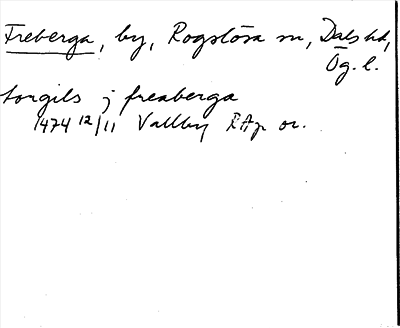 Freberga, by, Rogslösa sn, Dals hd,
Ög. l.
torgils j freaberga
1474 12/11 Vallby RAp or.